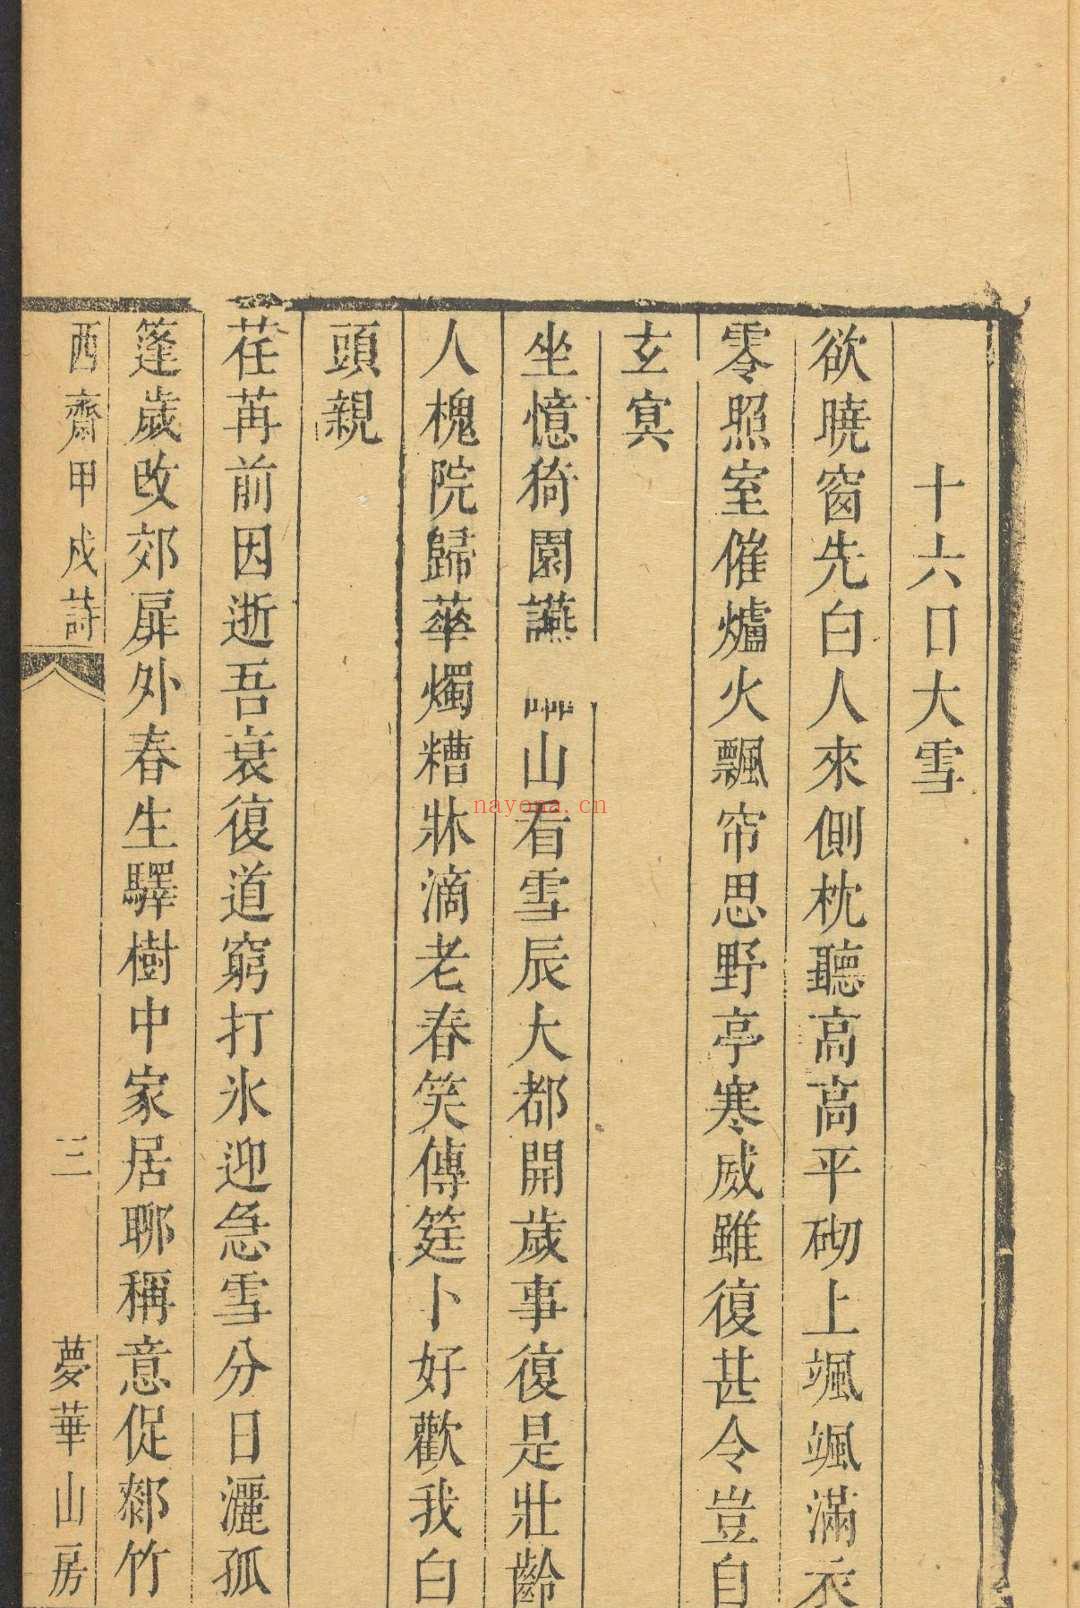 十六日大雪
欲曉窗先白人來側枕聽高高平砌上颯颯滿天
零照室催爐火飄帘思野亭寒威雖復甚令豈自
玄冥
坐憶猗園讌 山看雪辰大都開歲事復是壯齡
人槐院歸華燭糟牀滴老春笑傳筳卜好歡我白
頭親
荏苒前因逝吾衰復道窮打氷迎急雪分日灑孤
篷歲改郊扉外春生驛樹中家居聊稱意促鄰竹
西齋甲戍詩
三
夢華山房
nayona.cn